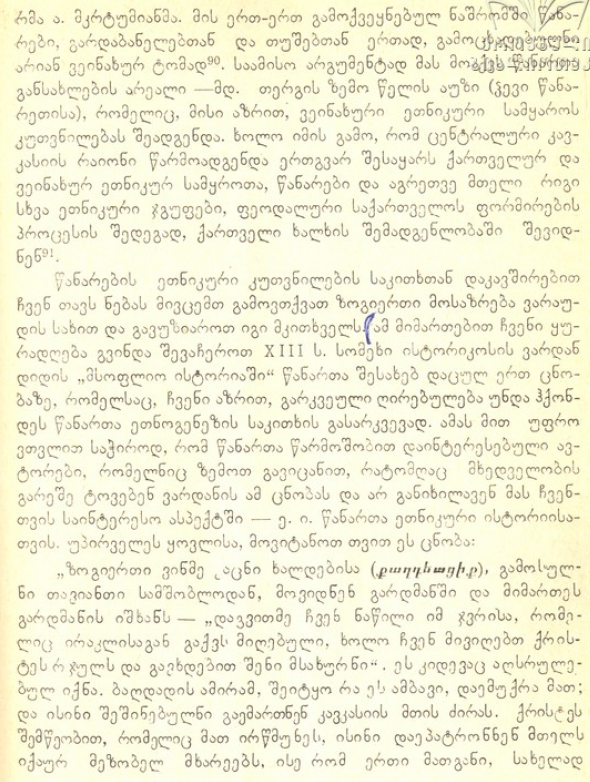 რმა ა. მკრტუმიანმა. მის ერთ-ერთ გამოქვეყნებულ ნაშრომში წანა-
რები, გარდაბანელებთან და თუშებთან ერთად, გამოცხადებულნი
არიან ვეინახურ ტომად⁹⁰. საამისო არგუმენტად მას მოაქვს წანართა
განსახლების არეალი —მდ. თერგის ზემო წელის აუზი (ჴევი წანა-
რეთისა), რომელიც, მისი აზრით, ვეინახური ეთნიკური სამყაროს
კუთვნილებას შეადგენდა. ხოლო იმის გამო, რომ ცენტრალური კავ-
კასიის რაიონი წარმოადგენდა ერთგვარ შესაყარს ქართველურ და
ვეინახურ ეთნიკურ სამყროთა, წანარები და აგრეთვე მთელი რიგი
სხვა ეთნიკური ჯგუფები, ფეოდალური საქართველოს ფორმირების
პროცესის შედეგად, ქართველი ხალხის შემადგენლობაში შევიდ-
ნენ⁹¹.
წანარების ეთნიკური კუთვნილების საკითხთან დაკავშირებით
ჩვენ თავს ნებას მივცემთ გამოვთქვათ ზოგიერთი მოსაზრება ვარაუ-
დის სახით და გავუზიაროთ იგი მკითხველს. ამ მიმართებით ჩვენი ყუ-
რადღება გვინდა შევაჩეროთ XIII ს. სომეხი ისტორიკოსის ვარდან
დიდის „მსოფლიო ისტორიაში“ წანართა შესახებ დაცულ ერთ ცნო-
ბაზე, რომელსაც, ჩვენი აზრით, გარკვეული ღირებულება უნდა ჰქონ-
დეს წანართა ეთნოგენეზის საკითხის გასარკვევად. ამას მით უფრო
ვთვლით საჭიროდ, რომ წანართა წარმოშობით დაინტერესებული ავ-
ტორები, რომელნიც ზემოთ გავიცანით, რატომღაც მხედველობის
გარეშე ტოვებენ ვარდანის ამ ცნობას და არ განიხილავენ მას ჩვენ-
თვის საინტერესო ასპექტში — ე. ი. წანართა ეთნიკური ისტორიისა-
თვის. უპირველეს ყოვლისა, მოვიტანოთ თვით ეს ცნობა:
„ზოგიერთი ვინმე კაცნი ხალდებისა (քաղդեացիք), გამოსულ-
ნი თავიანთი სამშობლოდან, მოვიდნენ გარდმანში და მიმართეს
გარდმანის იშხანს — „დაგვითმე ჩვენ ნაწილი იმ ჯვრისა, რომე-
ლიც ირაკლისაგან გაქვს მიღებული, ხოლო ჩვენ მივიღებთ ქრის-
ტეს რჯულს და გავხდებით შენი მსახურნი“. ეს კიდევაც აღსრულე-
ბულ იქნა. ბაღდადის ამირამ, შეიტყო რა ეს ამბავი, დაემუქრა მათ;
და ისინი შეშინებულნი გაემართნენ კავკასიის მთის ძირას. ქრისტეს
შემწეობით, რომელიც მათ ირწმუნეს, ისინი დაეპატრონნენ მთელს
იქაურ მეზობელ მხარეებს, ისე რომ ერთი მათგანი, სახელად